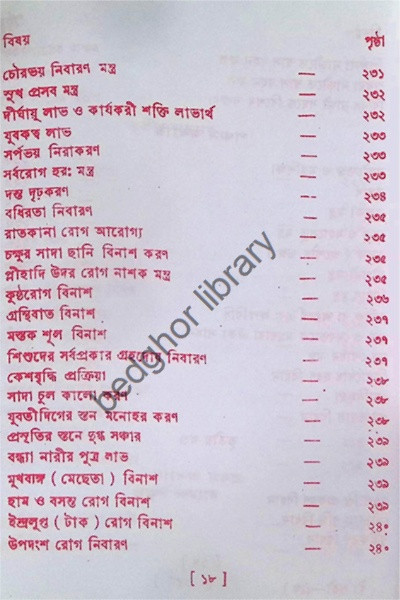 বিষয় পৃষ্ঠা
চৌরভয় নিবারণ মন্ত্র — ২৩১
সুখ প্রসব মন্ত্র — ২৩২
দীর্ঘায়ু লাভ ও কার্যকরী শক্তি লাভার্থ — ২৩২
যুবকত্ব লাভ — ২৩৩
সর্পভয় নিরাকরণ — ২৩৩
সর্বরোগ হরঃ মন্ত্র — ২৩৩
দন্ত দৃঢ়করণ — ২৩৪
বধিরতা নিবারণ — ২৩৫
রাতকানা রোগ আরোগ্য — ২৩৫
চক্ষুর সাদা ছানি বিনাশ করণ — ২৩৫
প্লীহাদি উদর রোগ নাশক মন্ত্র — ২৩৫
কুষ্ঠরোগ বিনাশ — ২৩৬
গ্রন্থিবাত বিনাশ — ২৩৭
মস্তক শূল বিনাশ — ২৩৭
শিশুদের সর্বপ্রকার গ্রহদোষ নিবারণ — ২৩৭
কেশবৃদ্ধি প্রক্রিয়া — ২৩৮
সাদা চুল কালো করণ — ২৩৮
যুবতীদিগের স্তন মনোহর করণ — ২৩৮
প্রসূতির স্তনে দুগ্ধ সঞ্চার — ২৩৯
বন্ধ্যা নারীর পুত্র লাভ — ২৩৯
মুখব্যঙ্গ ( মেছেতা ) বিনাশ — ২৩৯
হাম ও বসন্ত রোগ বিনাশ — ২৩৯
ইন্দ্রলুপ্ত ( টাক ) রোগ বিনাশ — ২৪০
উপদংশ রোগ নিবারণ — ২৪০
[ ১৮ ]
bedghor library